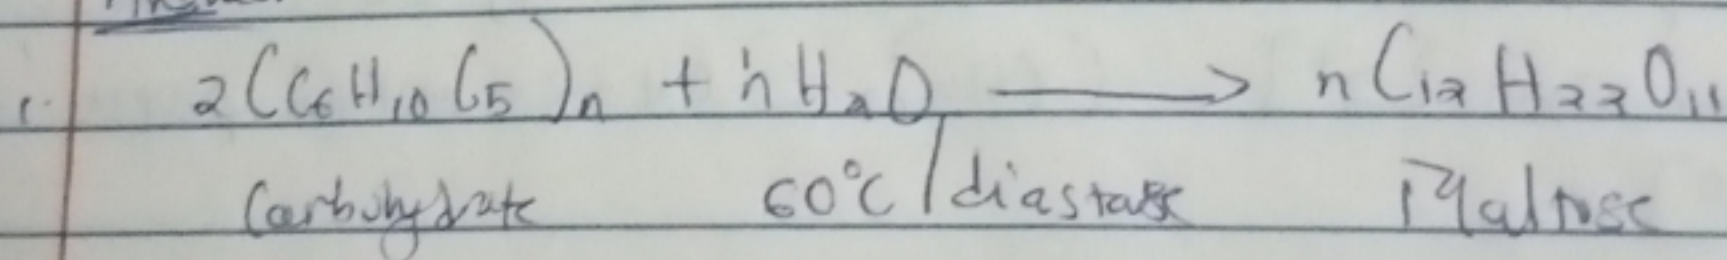 1. 2(C₆H₁₀C₅)ₙ + nH₂O ⟶ nC₁₂H₂₂O₁₁
Carbohydrate 60°C/diastase Maltose